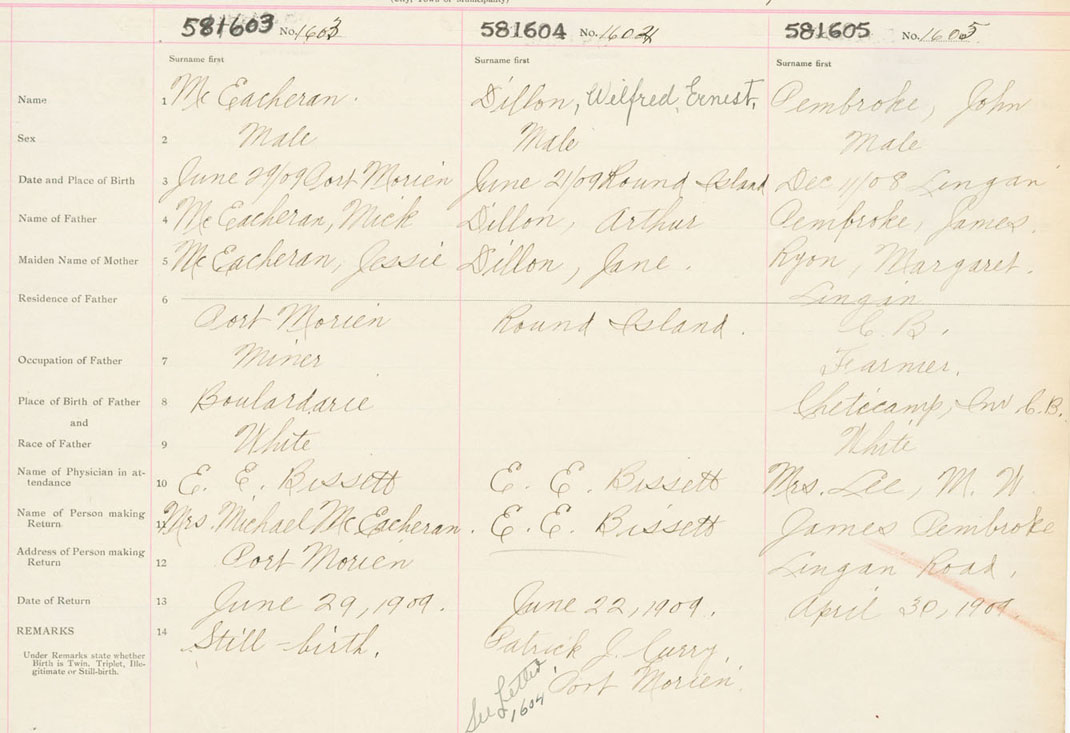 (City, Town or Municipality)
581603 No. 1603 581604 No. 1604 581605 No. 1605
Surname first Surname first Surname first
Name 1 McEacheran. Dillon, Wilfred, Ernest, Pembroke, John
Sex 2 Male Male Male
Date and Place of Birth 3 June 29/09 Port Morien June 21/09 Round Island Dec 11/08 Lingan
Name of Father 4 McEacheran, Mick Dillon, Arthur Pembroke, James.
Maiden Name of Mother 5 McEacheran, Jessie Dillon, Jane. Ryon, Margaret.
Residence of Father 6 Lingan
Port Morien Round Island. C. B.
Occupation of Father 7 Miner Farmer.
Place of Birth of Father 8 Boulardarie Cheticamp, Inv C.B.
and
Race of Father 9 White White
Name of Physician in at-
tendance 10 E. E. Bissett E. E. Bissett Mrs. Lee, M. W.
Name of Person making
Return 11 Mrs. Michael McEacheran. E. E. Bissett James Pembroke
Address of Person making
Return 12 Port Morien Lingan Road.
Date of Return 13 June 29, 1909. June 22, 1909. April 30, 1909
REMARKS 14 Still-birth. Patrick J. Curry,
Under Remarks state whether
Birth is Twin, Triplet, Ille-
gitimate or Still-birth.
Port Morien.
See Letter
1604